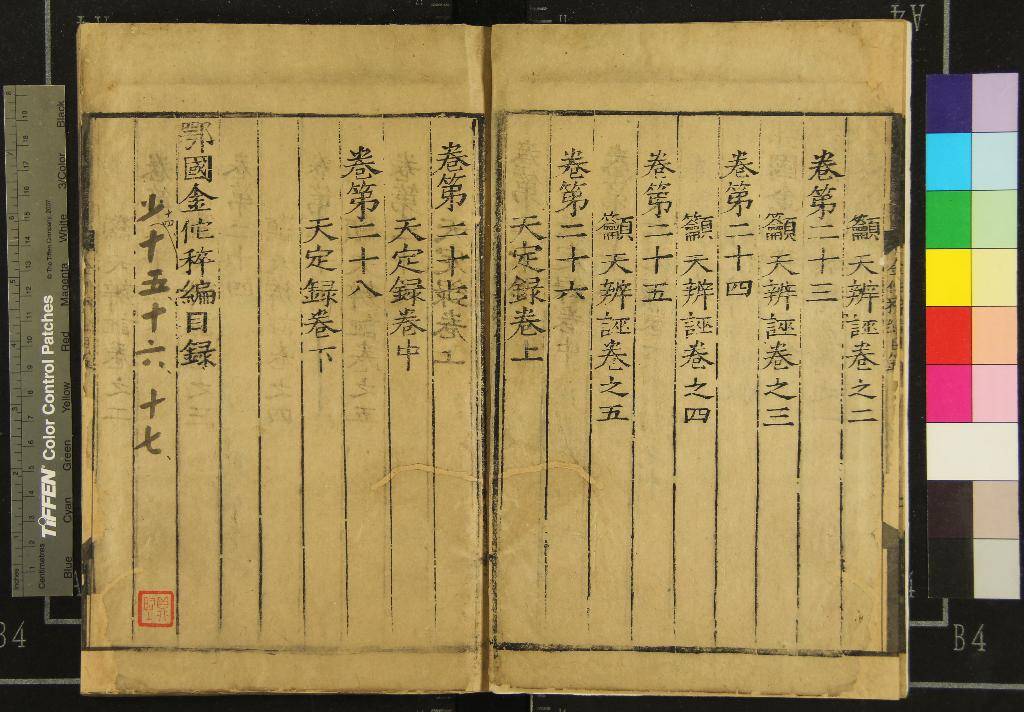 籲天辨誣卷之二
卷第二十三
籲天辨誣卷之三
卷第二十四
籲天辨誣卷之四
卷第二十五
籲天辨誣卷之五
卷第二十六
天定録卷上
卷第二十
天定録卷中
卷第二十八
天定録卷下
鄂國金佗稡編目録
少十五十六、十七、
B4
B4
TIFFEN Color Control Patches
© The Tiffen Company, 2007
Centimetres
Inches
Blue
Cyan
Green
Yellow
Red
Magenta
White
3/Color
Black